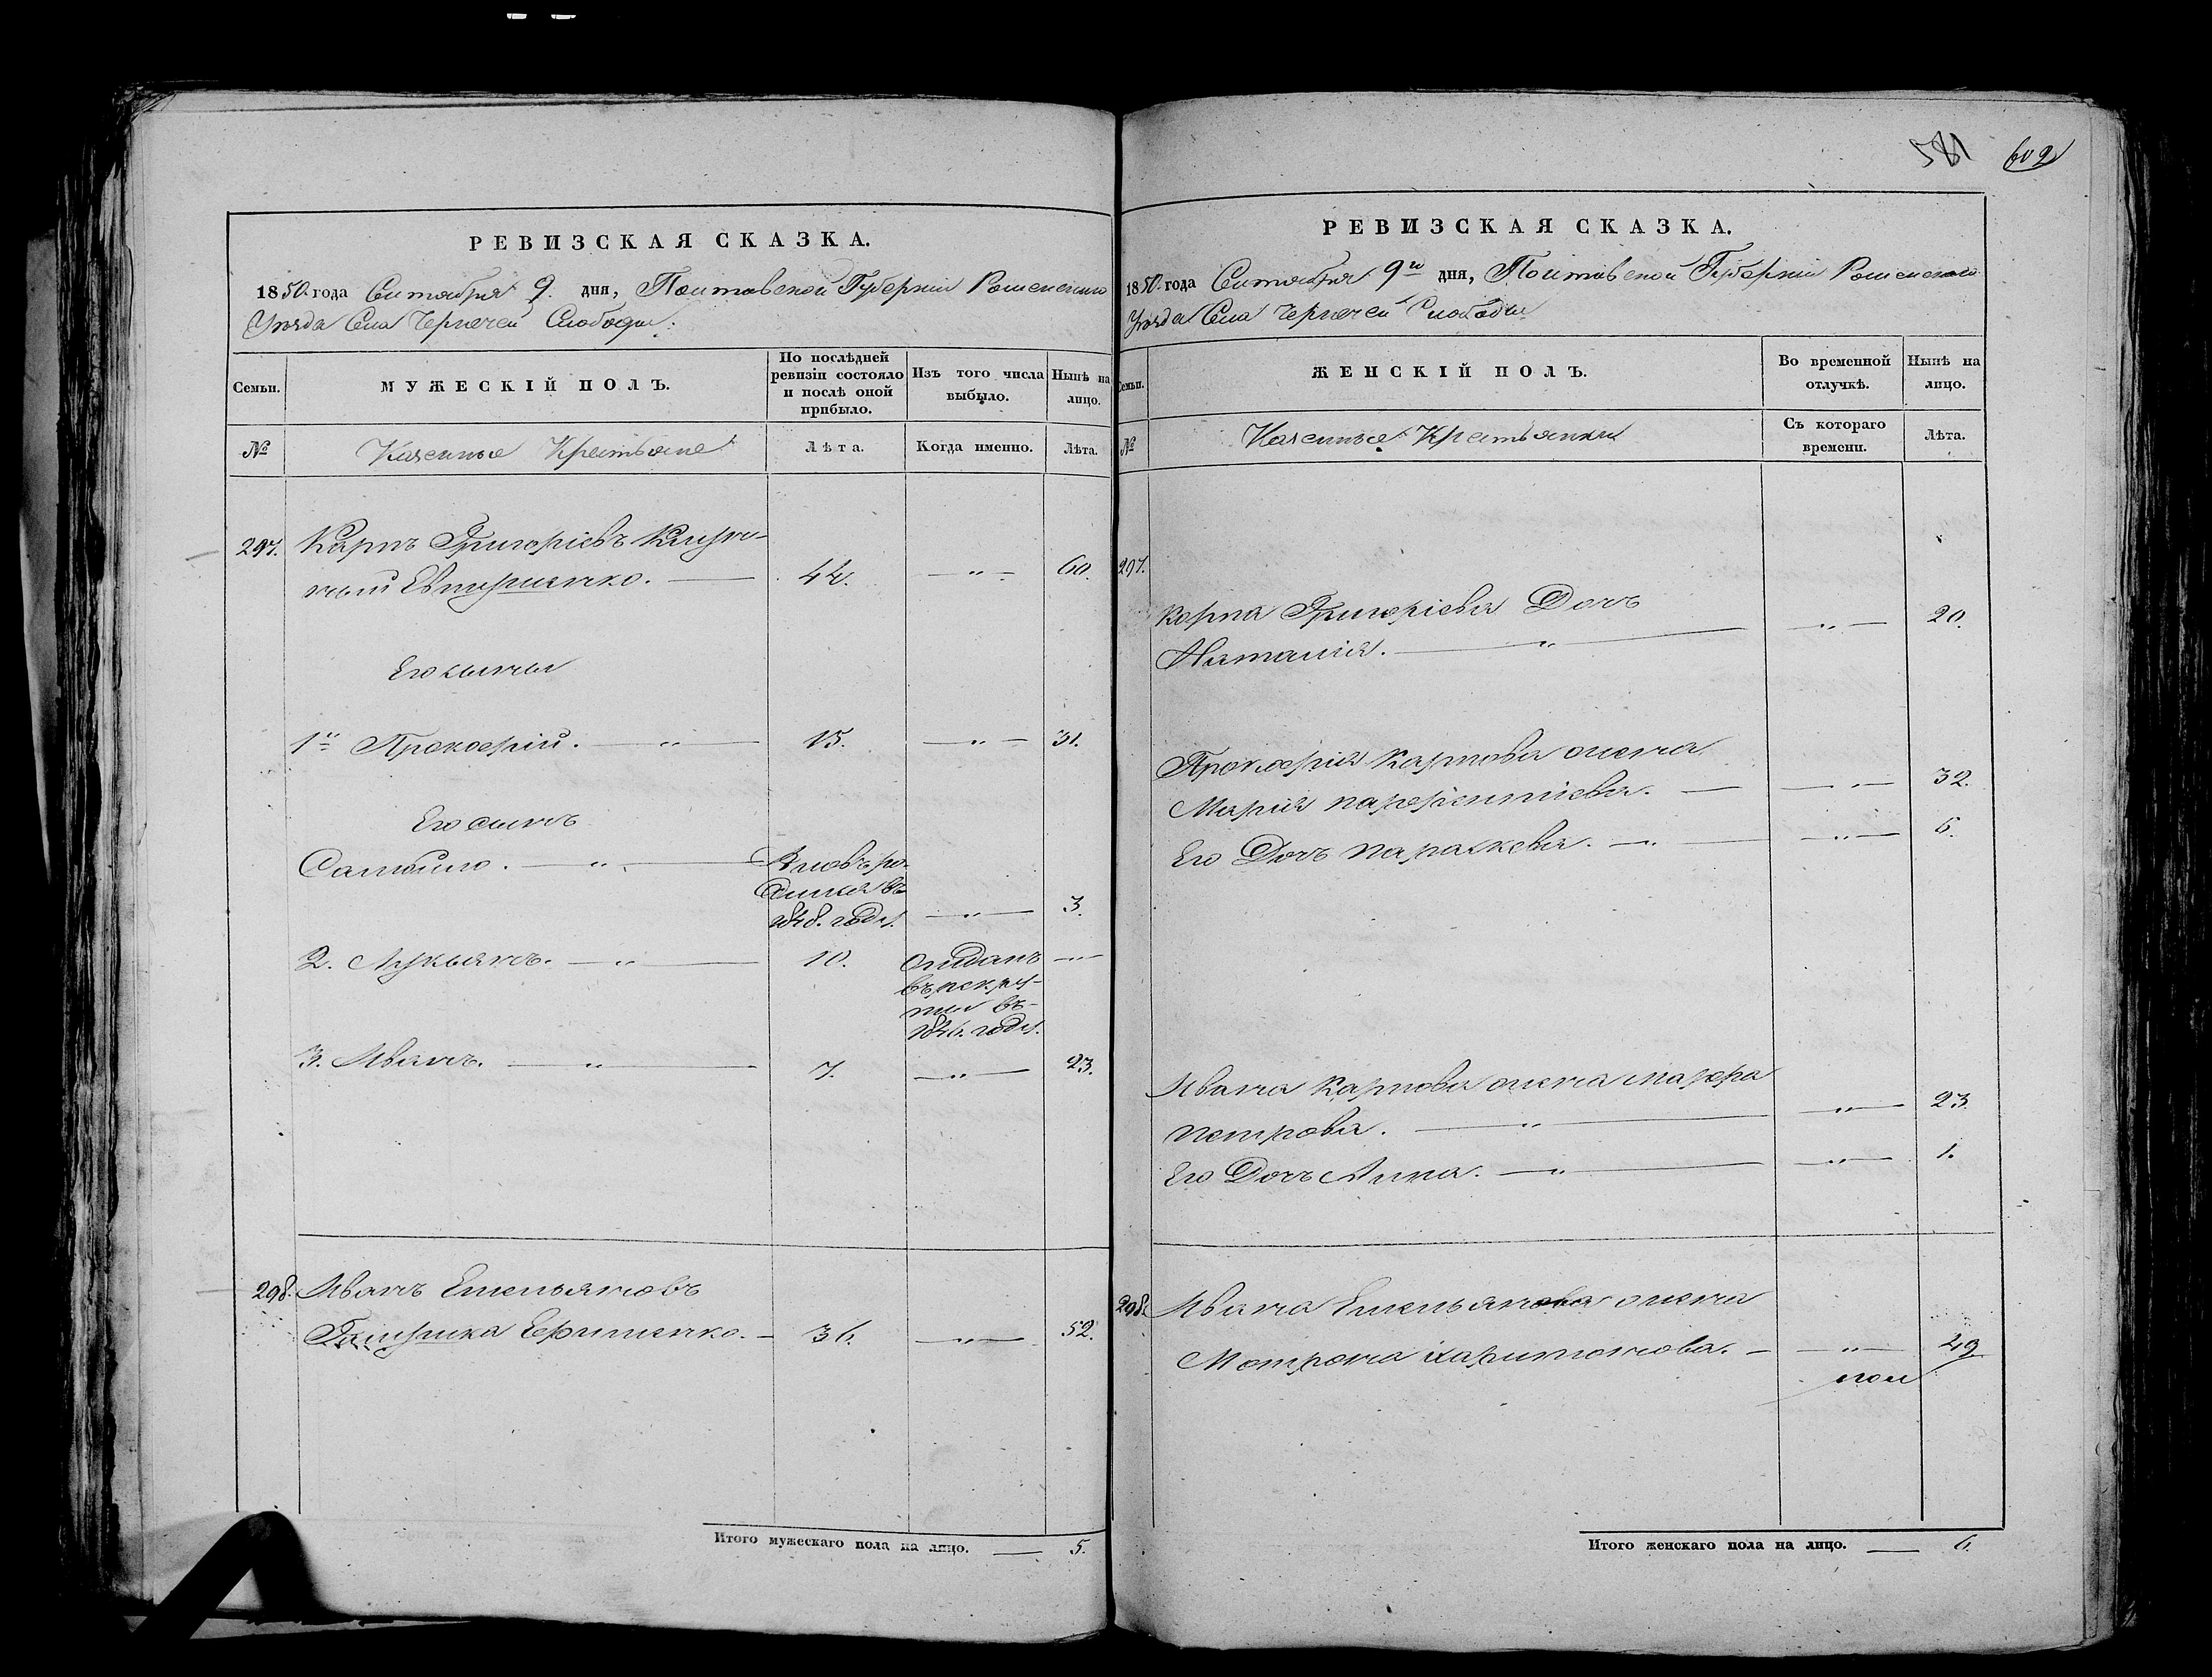 РЕВИЗСКАЯ СКАЗКА.
1850 года Сентября 9. дня, Полтавской Губерніи Роменского
Уѣзда Села Чернечей Слободы.
Семьи.
МУЖЕСКІЙ ПОЛЪ.
По послѣдней ревизіи состояло и послѣ оной прибыло.
Изъ того числа выбыло.
Нынѣ на лицо.
№
Казенные Крестьяне
Лѣта.
Когда именно.
Лѣта.
297. Карпъ Григоріевъ
44. — „ — 60.
Его сыны
1й Прокофій. — „ — 15. — „ — 31.
Его сынъ
Самойло. — „ — Вновь ро-
дился въ
1848. году. — „ — 3.
2. Лукьянъ. — „ — 10. отданъ — „ —
въ рекру-
ты въ
1846. году.
3. Иванъ. — „ — 7. — „ — 23.
298. Иванъ Емельяновъ
Ефименко. — 36. — „ — 52.
Итого мужескаго пола на лицо. — 5.
581 602
РЕВИЗСКАЯ СКАЗКА.
1850 года Сентября 9го дня, Полтавской Губерніи Роменского
Уѣзда Села Чернечей Слободы
Семьи.
ЖЕНСКІЙ ПОЛЪ.
Во временной отлучкѣ.
Нынѣ на лицо.
№
Казенные Крестьянки
Съ котораго времени.
Лѣта.
297.
Карпа Григоріева Дочь
Наталия. — „ — — „ — 20.
Прокофія Карпова жена
Марія Парфентіева. — — „ — 32.
Его Дочь Параскева. — „ — — „ — 6.
Ивана Карпова жена Марфа
Петрова. — „ — — „ — 23.
Его Дочь Анна. — „ — — „ — 1.
298. Ивана Емельянова жена
Мотрона Харитонова. — — „ — 49
Итого женскаго пола на лицо. — 6.